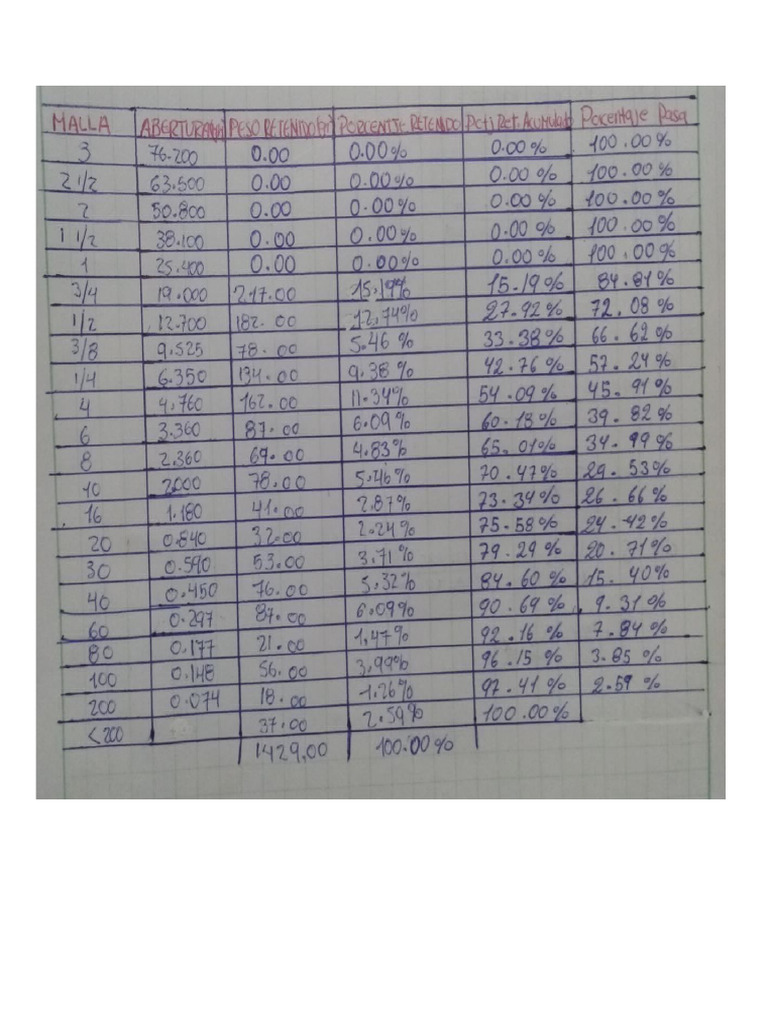 MALLA ABERTURA(mm) PESO RETENIDO(gr) PORCENTJE RETENIDO Pctj Ret. Acumulado Porcentaje Pasa
3 76.200 0.00 0.00% 0.00% 100.00%
2 1/2 63.500 0.00 0.00% 0.00% 100.00%
2 50.800 0.00 0.00% 0.00% 100.00%
1 1/2 38.100 0.00 0.00% 0.00% 100.00%
1 25.400 0.00 0.00% 0.00% 100.00%
3/4 19.000 217.00 15.19% 15.19% 84.81%
1/2 12.700 182.00 12.74% 27.92% 72.08%
3/8 9.525 78.00 5.46% 33.38% 66.62%
1/4 6.350 134.00 9.38% 42.76% 57.24%
4 4.760 162.00 11.34% 54.09% 45.91%
6 3.360 87.00 6.09% 60.18% 39.82%
8 2.360 69.00 4.83% 65.01% 34.99%
10 2000 78.00 5.46% 70.47% 29.53%
16 1.180 41.00 2.87% 73.34% 26.66%
20 0.840 32.00 2.24% 75.58% 24.42%
30 0.590 53.00 3.71% 79.29% 20.71%
40 0.450 76.00 5.32% 84.60% 15.40%
60 0.297 87.00 6.09% 90.69% 9.31%
80 0.177 21.00 1,47% 92.16% 7.84%
100 0.148 56.00 3.99% 96.15% 3.85%
200 0.074 18.00 1.26% 97.41% 2.59%
<200 37.00 2.59% 100.00%
1429,00 100.00%